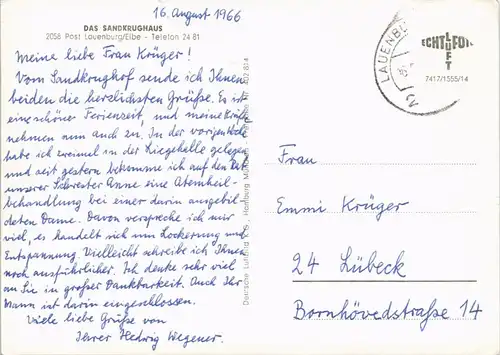 16. August 1966
DAS SANDKRUGHAUS
2058 Post Lauenburg/Elbe - Telefon 24 81
Meine liebe Frau Krüger!
Vom Sandkrughof sende ich Ihnen
beiden die herzlichsten Grüße. Es ist
eine schöne Ferienzeit, und meine Kräfte
nehmen nun auch zu. In der vorigen Woche
habe ich zweimal in der Liegehalle gelegen
und seit gestern bekomme ich auf den Rat
unserer Schwester Anne eine Atemheil-
behandlung bei einer darin ausgebil-
deten Dame. Davon verspreche ich mir
viel, es handelt sich um Lockerung und
Entspannung. Vielleicht schreibe ich Ihnen
noch ausführlicher. Ich denke sehr viel
an Sie in großer Dankbarkeit. Auch Ihr
Mann ist darin eingeschlossen.
Viele liebe Grüße von
Ihrer Hedwig Wegener.
Deutsche Luftbild K.G., Hamburg
LAUENBU
2
ECHT LUFT FOTO
7417/1555/14
Frau
Emmi Krüger
24 Lübeck
Bornhövedstraße 14